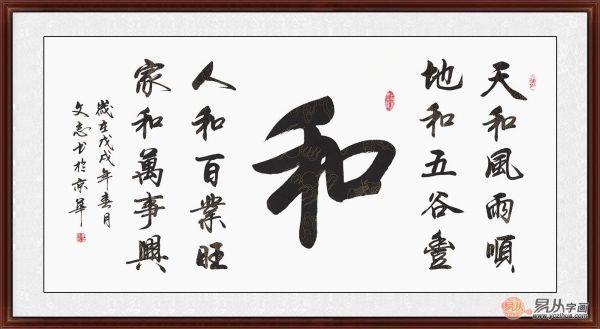 天和風雨順
地和五谷豊
和
人和百業旺
家和萬事興
歲在戊戌年春月
文志书於京華
易从字画
www.yozihua.com